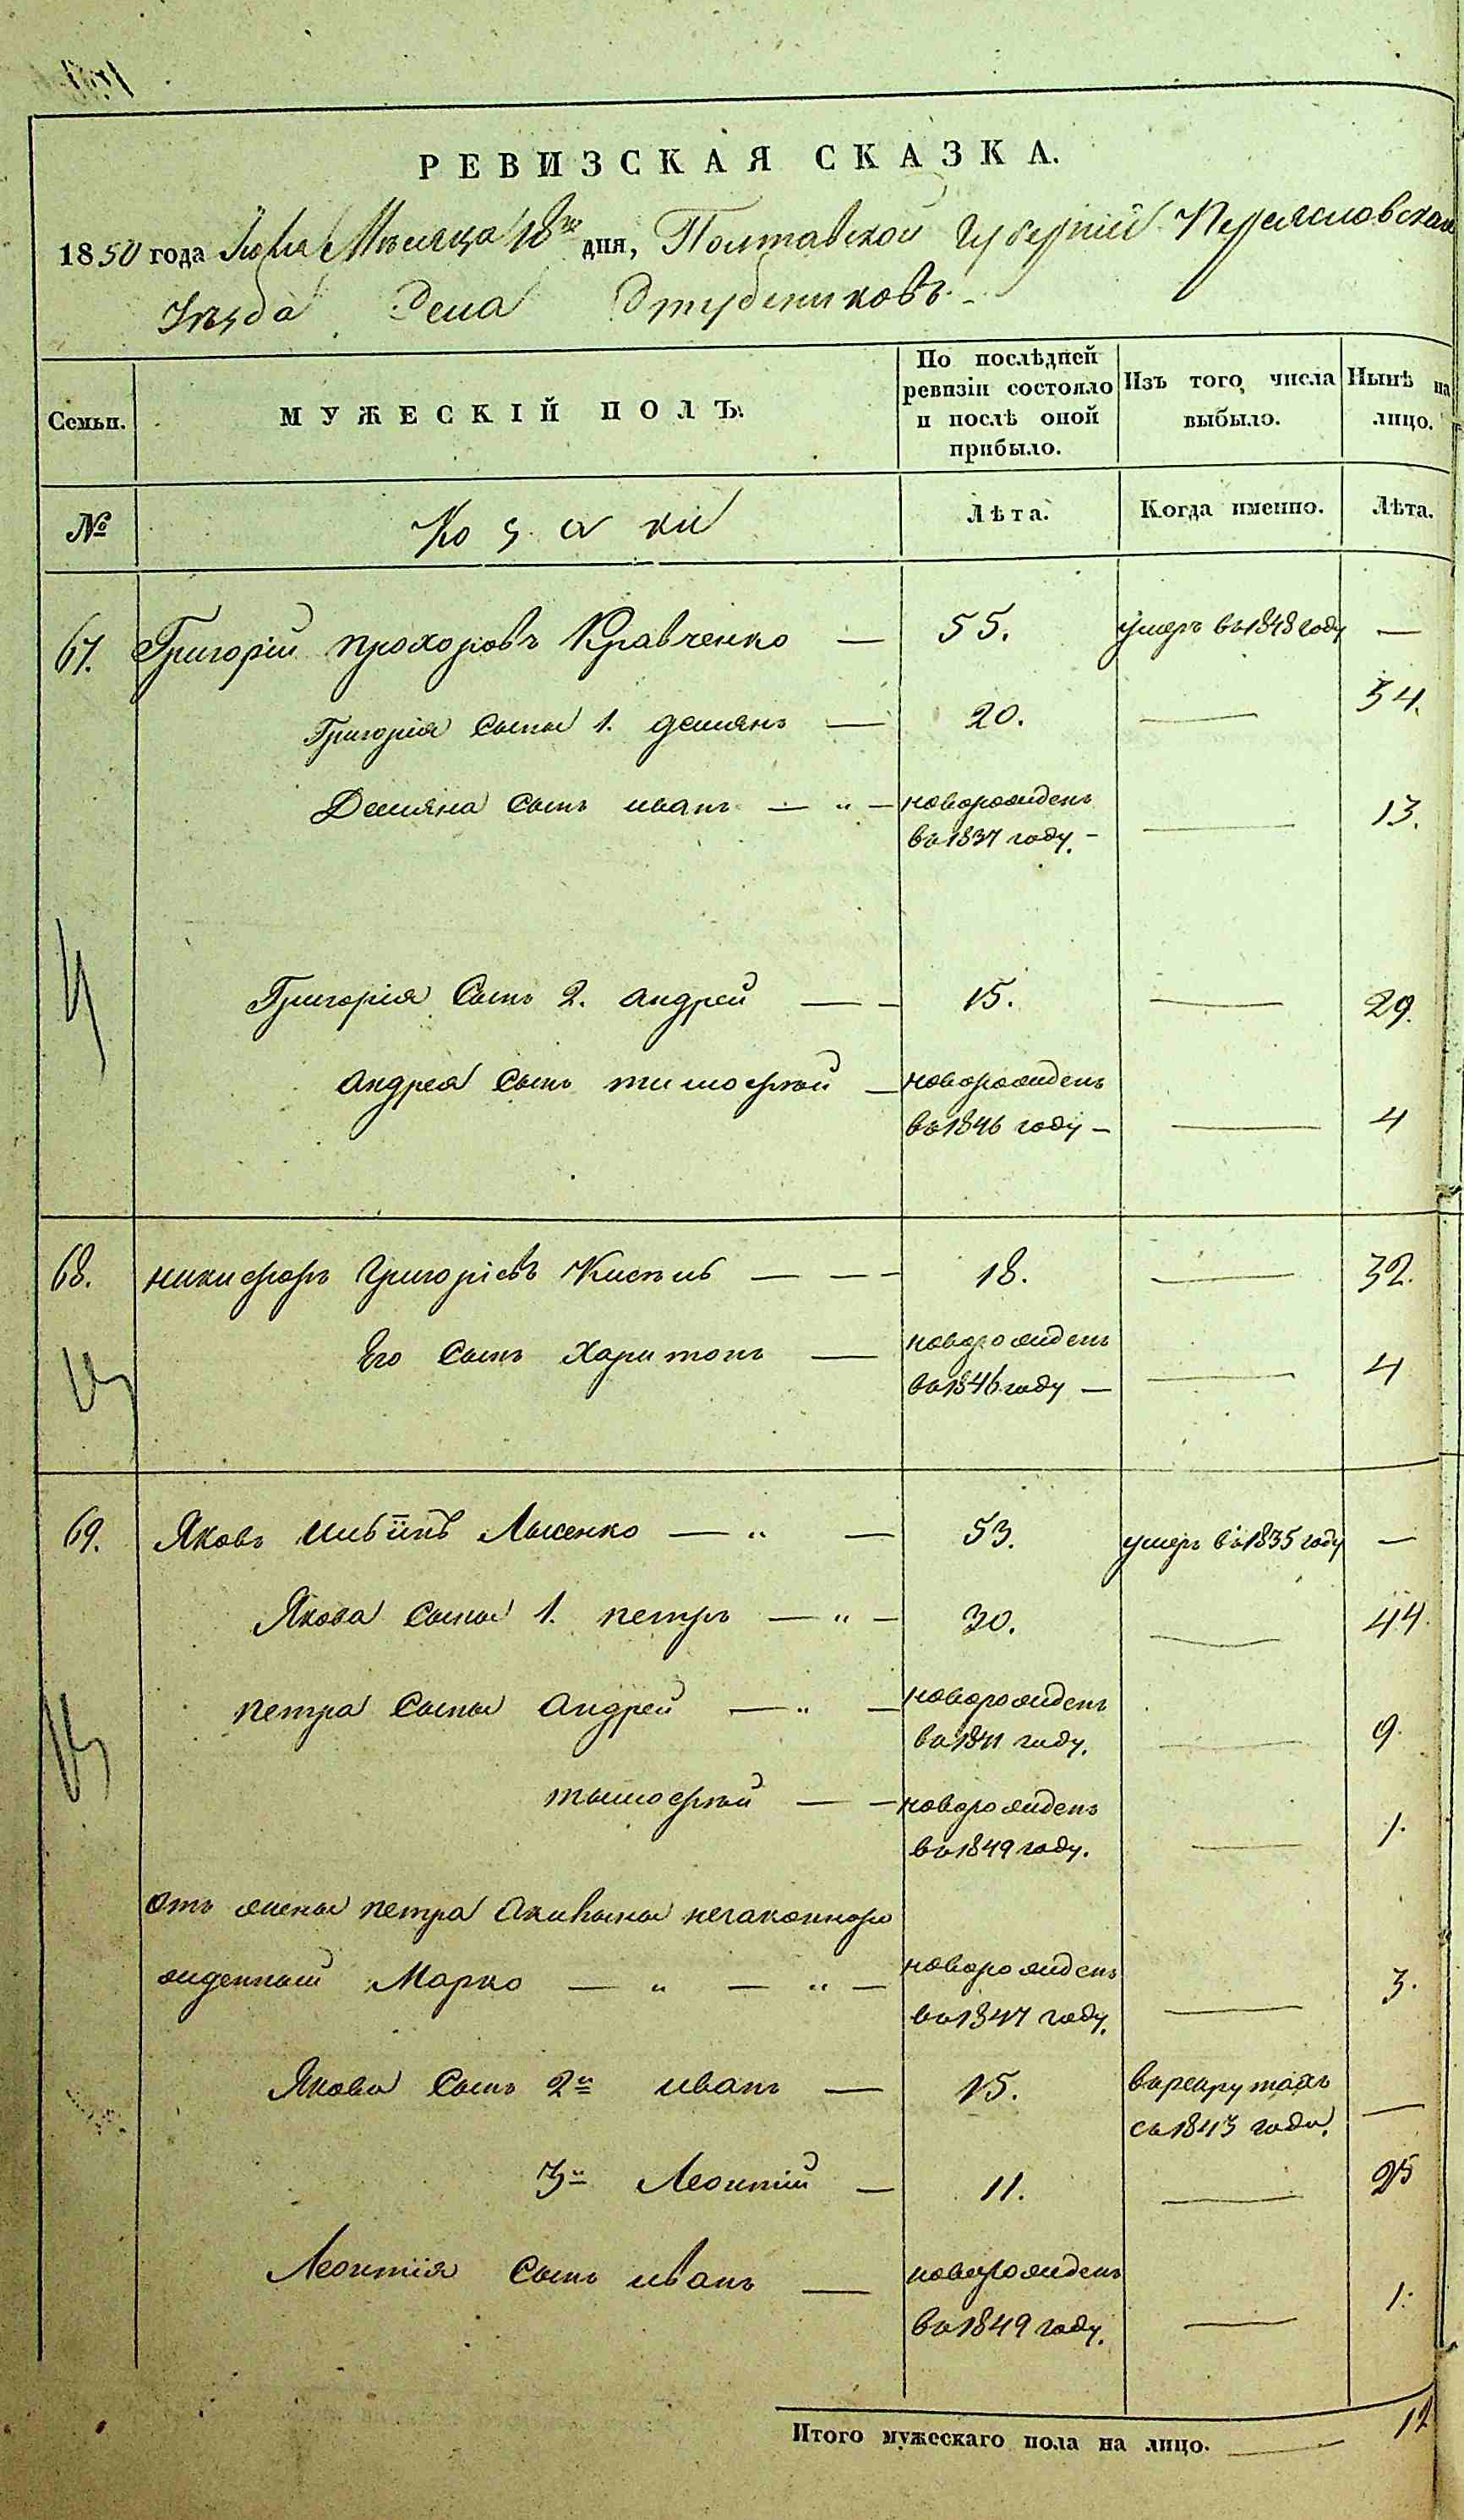 РЕВИЗСКАЯ СКАЗКА.
1850 года Июля Месяца 18го дня, Полтавской Губерніи Переясловскаго
Уезда Села Стубениковъ
Семьи. МУЖЕСКІЙ ПОЛЪ. По послѣдней ревизіи состояло и послѣ оной прибыло. Изъ того числа выбыло. Нынѣ на лицо.
№ Козаки Лѣта. Когда именно. Лѣта.
67. Григорій Прохоровъ Кравченко — 55. умеръ въ 1848 году —
Григорія сыны 1. Демянъ — 20. — 34.
Демяна сынъ иванъ — " — новорожденъ
въ 1837 году. — — 13.
Григорія сынъ 2. андрей — — 15. — 29.
андрея сынъ тимофтей — новорожденъ
въ 1846 году — — 4
68. никифоръ григоріевъ Кисель — — — 18. — 32.
его сынъ харитонъ — новорожденъ
въ 1846 году — — 4
69. Яковъ ильинъ Лысенко — " — 53. умеръ въ 1835 году —
Якова сыны 1. петръ — " — 30. — 44.
петра сыны андрей — " — новорожденъ
въ 1841 году. — 9.
тымофтей — — новорожденъ
въ 1849 году. — 1.
отъ жены петра акилыны незаконноро
жденный Марко — " — " — новорожденъ
въ 1847 году. — 3.
Якова сынъ 2й иванъ — 15. въ рекрутахъ
съ 1843 года. —
3й Леонтій — 11. — 25
Леонтія сынъ иванъ — новорожденъ
въ 1849 году. — 1.
Итого мужескаго пола на лицо. — 12